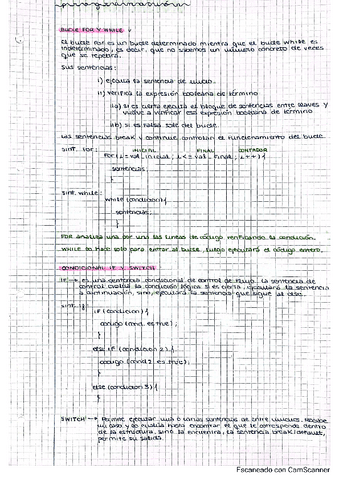 programación
BUCLE FOR Y WHILE
El bucle for es un bucle determinado mientra que el bucle while es
indeterminado, es decir, que no sabemos un número concreto de veces
que se repetirá.
Sus sentencias:
i) ejecuta la sentencia de inicio.
ii) verifica la expresión booleana de término
iia) si es cierta ejecuta el bloque de sentencias entre llaves y
vuelve a verificar esa expresión booleana de término
iib) si es falsa sale del bucle.
Las sentencias break y continue controlan el funcionamiento del bucle.
sint. for: INICIAL FINAL CONTADOR
for (i = val_inicial; i <= val_final; i++) {
sentencias
}
sint. while:
while (condicion) {
sentencias;
}
FOR analiza una por una las líneas de código verificando la condición.
WHILE lo hace solo para entrar al bucle, luego ejecutará el código entero.
CONDICIONAL IF Y SWITCH
IF → es una sentencia condicional de control de flujo. La sentencia de
control evalúa la condición lógica si es cierta, ejecutará la sentencia
a continuación, sino, ejecutará la sentencia que sigue al else.
sint. if:
if (condicion) {
codigo (cond. es true);
}
else if (condicion 2) {
codigo (cond 2 es true);
}
else (condicion 3) {
}
SWITCH → Permite ejecutar una o varias sentencias de entre muchas, recibe
un caso y lo evalúa hasta encontrar el que le corresponda dentro
de la estructura, sino lo encuentra, la sentencia break/default,
permite su salida.
Escaneado con CamScanner